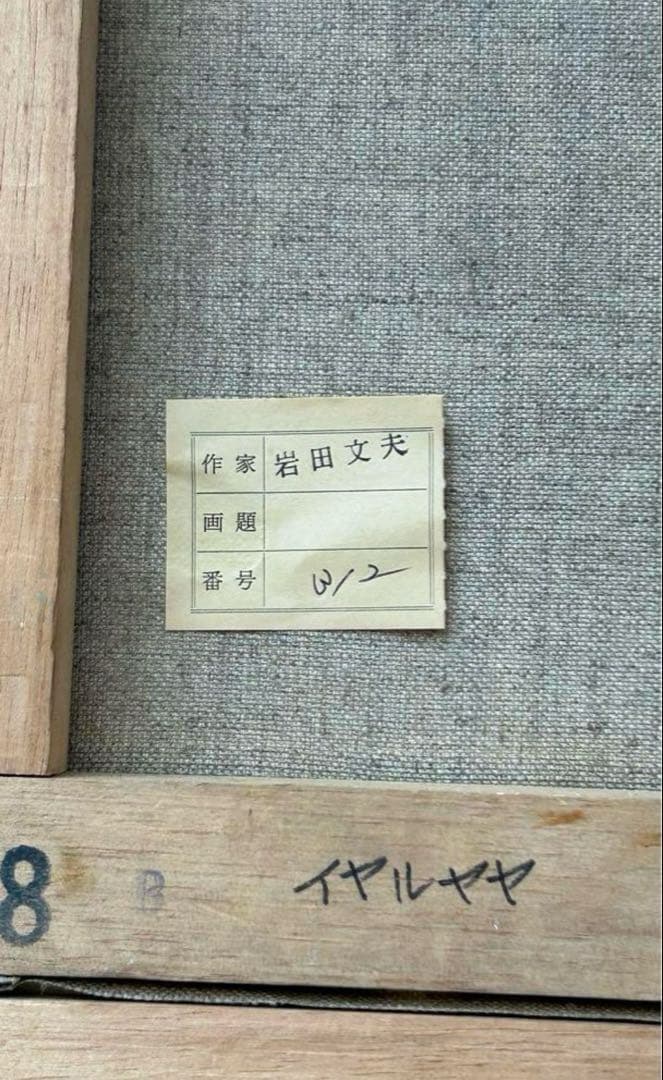 作家 岩田文夫
画題
番号 312
8 B イヤルヤヤ